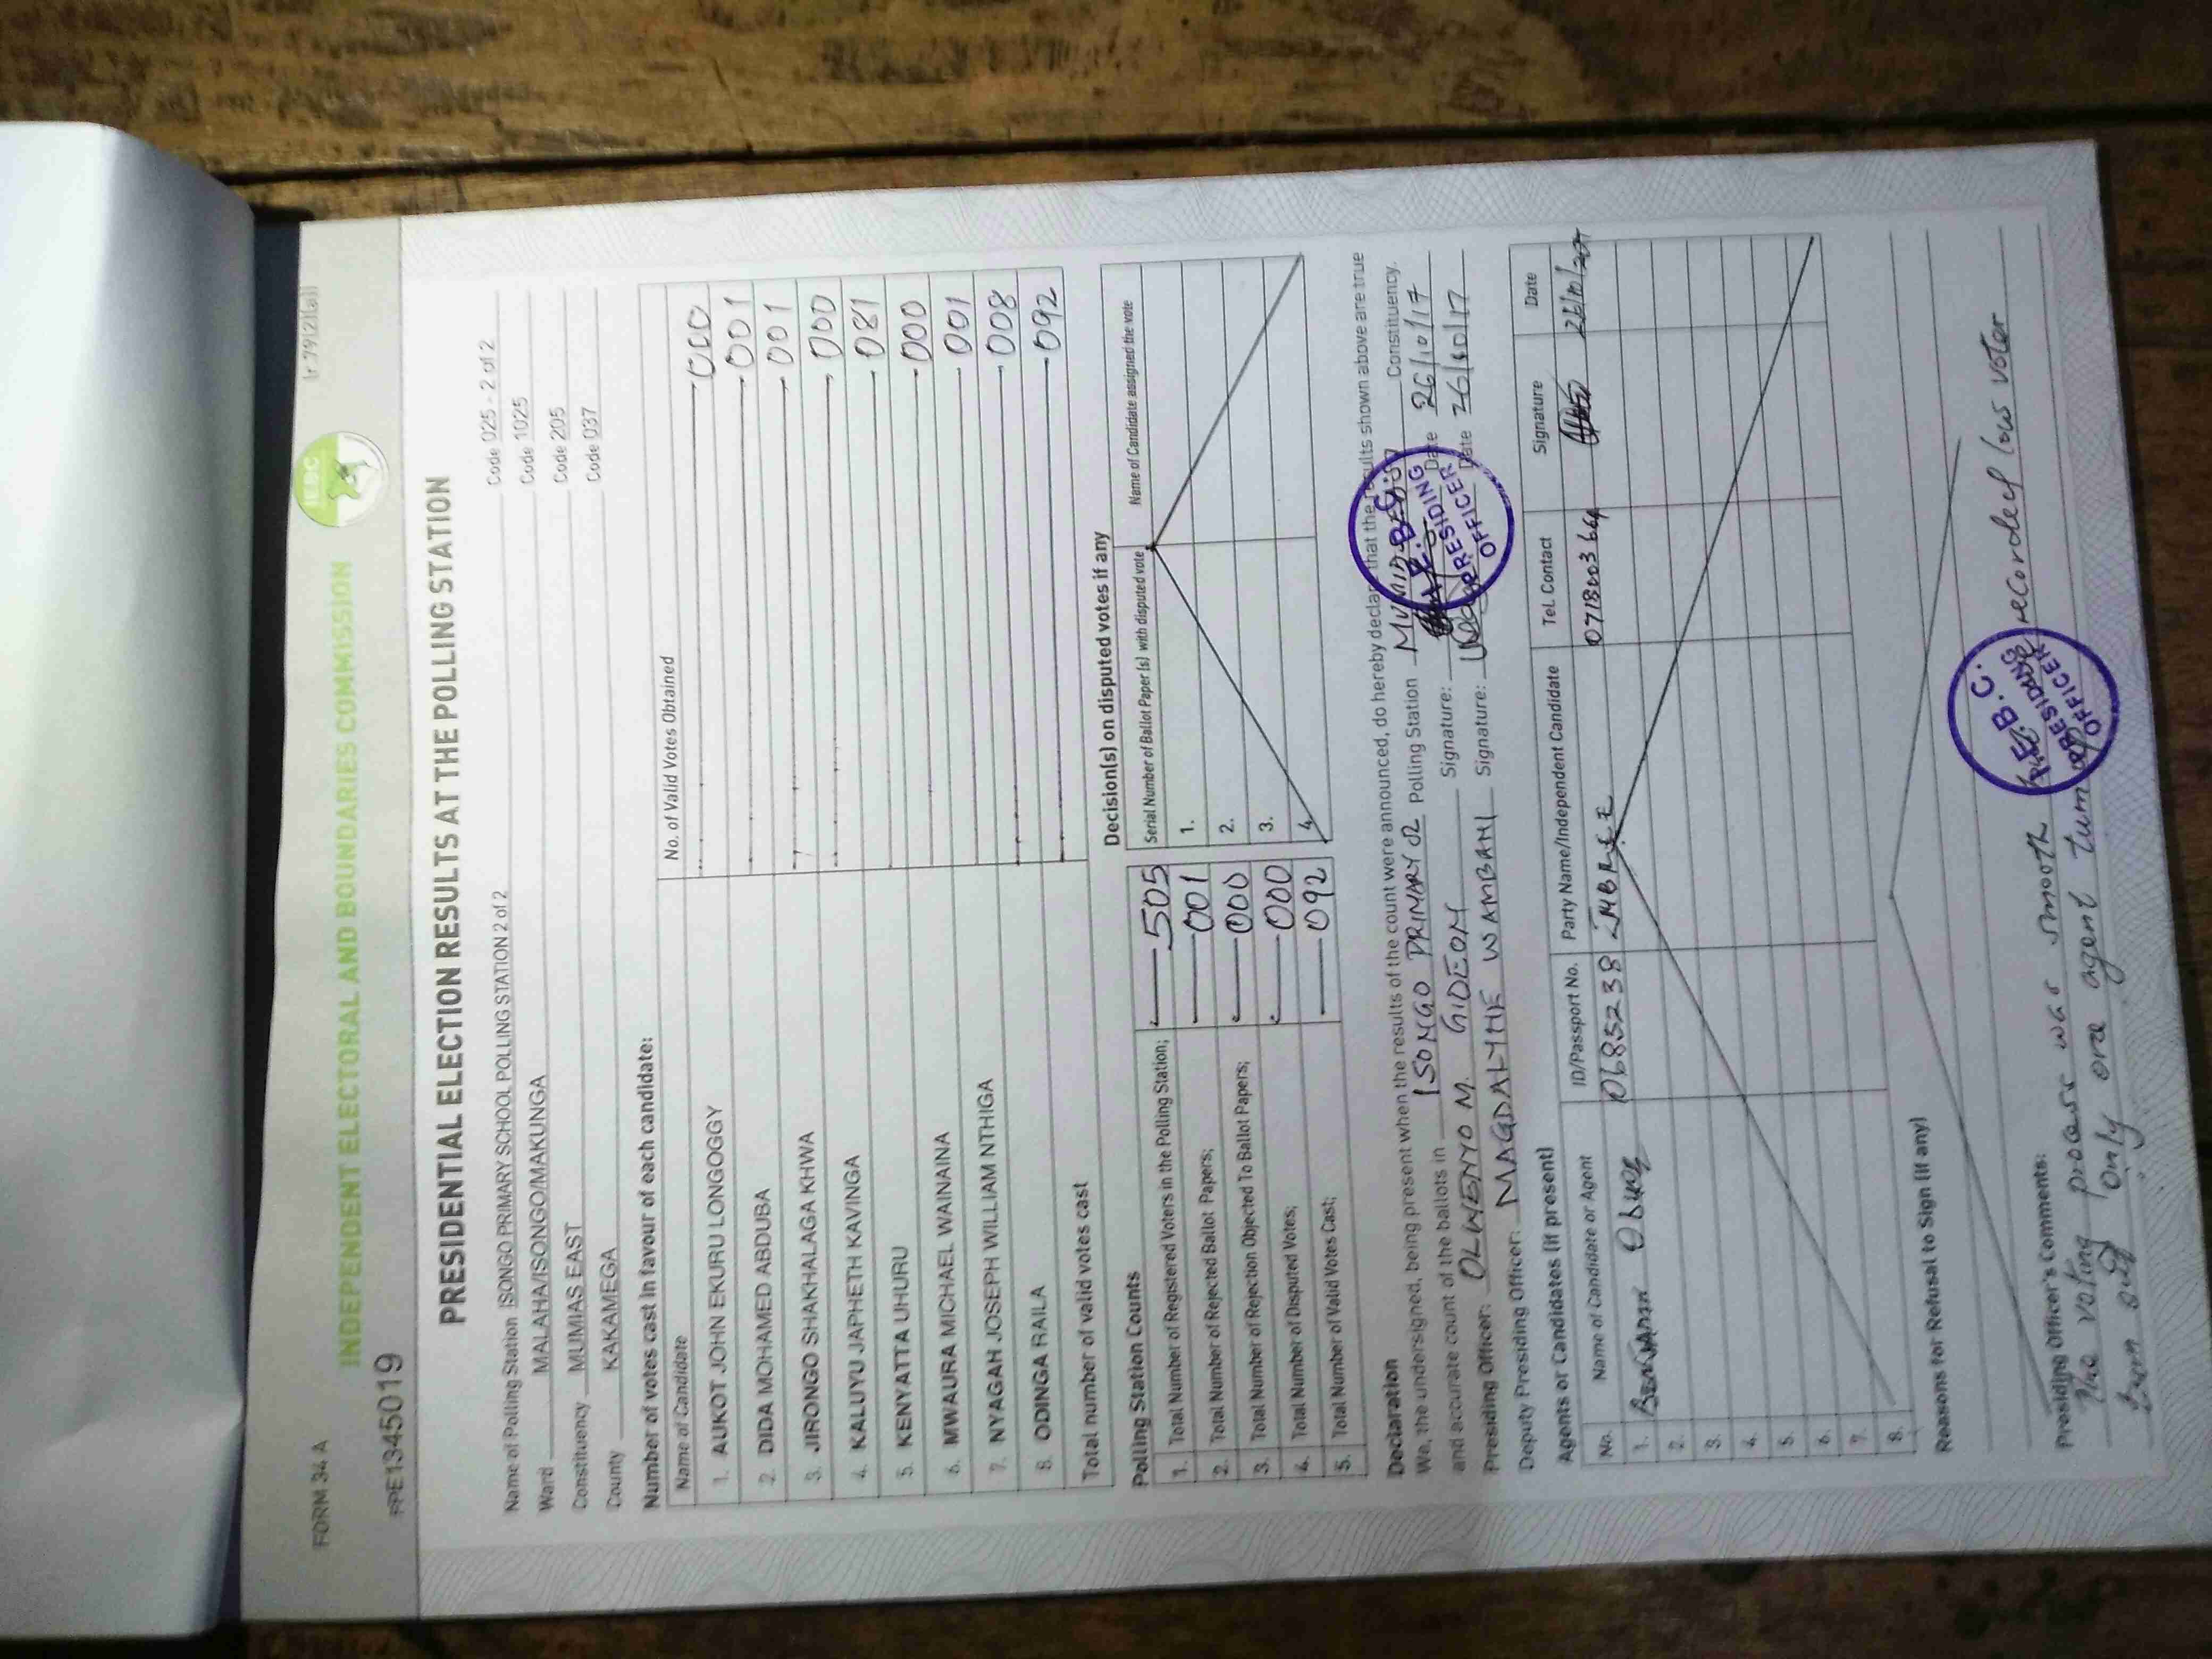 FORM 34 A (r.79(2)(a))
IEBC
INDEPENDENT ELECTORAL AND BOUNDARIES COMMISSION
PPE1345019
PRESIDENTIAL ELECTION RESULTS AT THE POLLING STATION
Name of Polling Station ISONGO PRIMARY SCHOOL POLLING STATION 2 of 2 Code 025 - 2 of 2
Ward MALAHA/ISONGO/MAKUNGA Code 1025
Constituency MUMIAS EAST Code 205
County KAKAMEGA Code 037
Number of votes cast in favour of each candidate:
Name of Candidate No. of Valid Votes Obtained
1. AUKOT JOHN EKURU LONGOGGY 000
2. DIDA MOHAMED ABDUBA 001
3. JIRONGO SHAKHALAGA KHWA 001
4. KALUYU JAPHETH KAVINGA 000
5. KENYATTA UHURU 081
6. MWAURA MICHAEL WAINAINA 000
7. NYAGAH JOSEPH WILLIAM NTHIGA 001
8. ODINGA RAILA 008
Total number of valid votes cast 092
Polling Station Counts
1. Total Number of Registered Voters in the Polling Station; 505
2. Total Number of Rejected Ballot Papers; 001
3. Total Number of Rejection Objected To Ballot Papers; 000
4. Total Number of Disputed Votes; 000
5. Total Number of Valid Votes Cast; 092
Decision(s) on disputed votes if any
Serial Number of Ballot Paper (s) with disputed vote Name of Candidate assigned the vote
1.
2.
3.
4.
Declaration
We, the undersigned, being present when the results of the count were announced, do hereby declare that the results shown above are true
and accurate count of the ballots in ISONGO PRIMARY 02 Polling Station MUMIAS EAST Constituency.
Presiding Officer: OLWENYO M. GIDEON Signature: Date 26/10/17
Deputy Presiding Officer: MAGDALYNE WAMBANI Signature: Date 26/10/17
I.E.B.C. PRESIDING OFFICER
Agents or Candidates (if present)
No. Name of Candidate or Agent ID/Passport No. Party Name/Independent Candidate Tel. Contact Signature Date
1. 0685238 0718003664
2.
3.
4.
5.
6.
7.
8.
Reasons for Refusal to Sign (if any)
Presiding Officer's Comments:
The voting process was smooth recorded low voter
turn out only one agent turn up
I.E.B.C. PRESIDING OFFICER